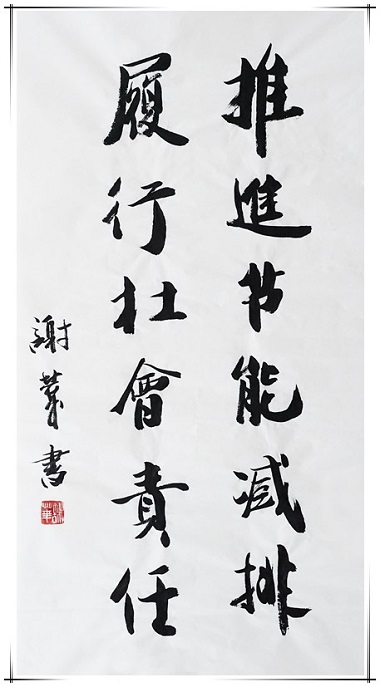 推進节能減排
履行社會責任
謝華書